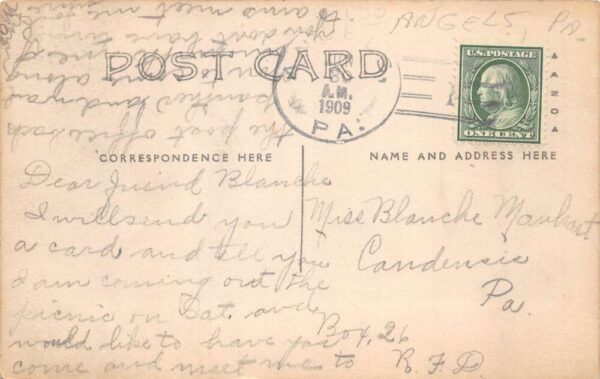 ANGELS PA.
POST CARD
A.M.
1909
PA.
U.S. POSTAGE
ONE CENT
AZO
CORRESPONDENCE HERE
NAME AND ADDRESS HERE
Dear friend Blanche
I will send you
a card and tell you
I am coming out the
picnic on Sat. and
would like to have you
come and meet me to
the post office back
you don't have time
to come meet me
Miss Blanche Manhart
Candensis
Pa.
Box, 26
R. F. D.